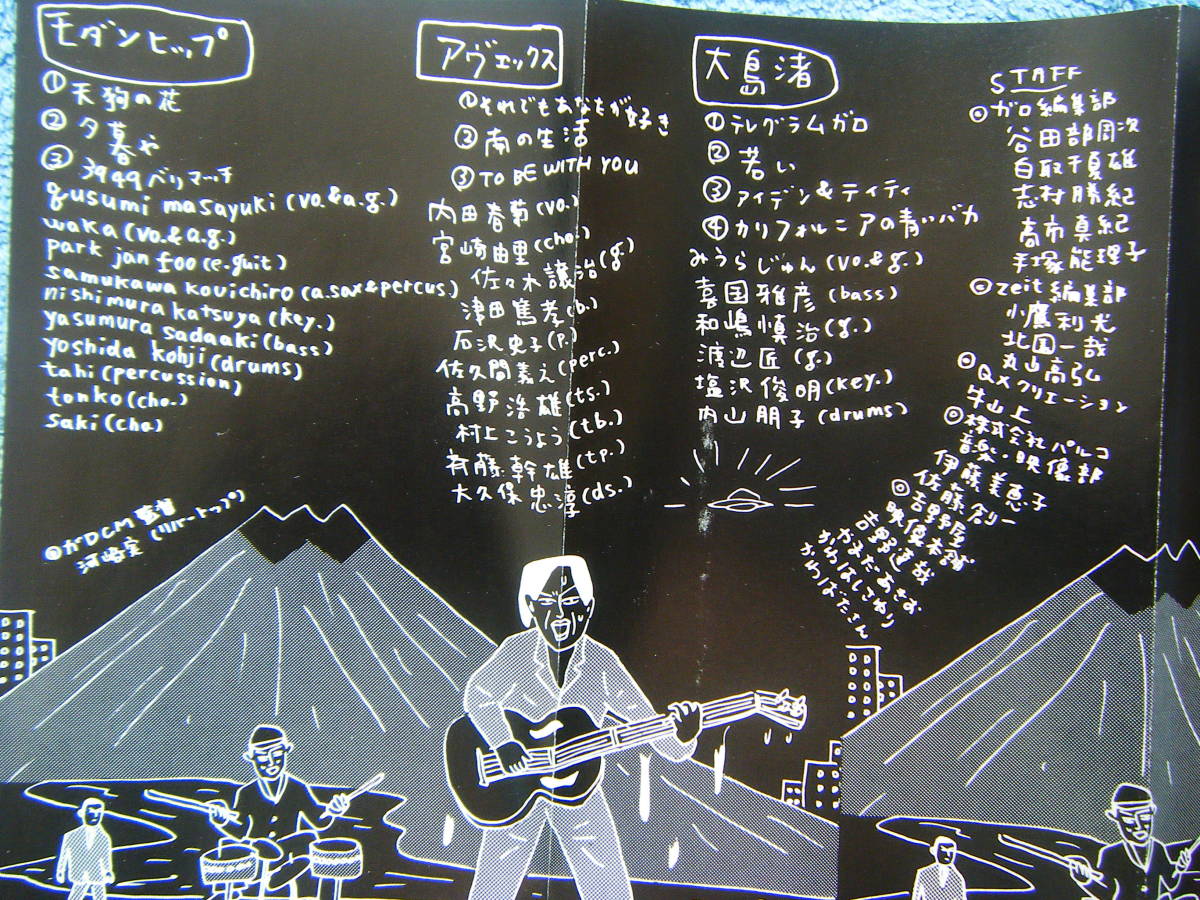 モダンヒップ
①天狗の花
②夕暮や
③3949ベリマッチ
gusumi masayuki (vo.&a.g.)
waka (vo.&a.g.)
park jan foo (e.guit)
samukawa kouichiro (a.sax&percus)
nishimura katsuya (key.)
yasumura sadaaki (bass)
yoshida kohji (drums)
tahi (percussion)
tonko (cho.)
saki (cho)
◎ガDCM監督
河崎実 (リバートップ)
アヴェックス
①それでもあなたが好き
②南の生活
③TO BE WITH YOU
内田春菊 (vo.)
宮崎由里 (cho.)
佐々木譲治 (g.)
津田篤孝 (b.)
石沢史子 (p.)
佐久間義え (perc.)
高野浩雄 (ts.)
村上こうよう (tb.)
斉藤幹雄 (tp.)
大久保忠淳 (ds.)
大島渚
①テレグラムガロ
②若い
③アイデン&ティティ
④カリフォルニアの青いバカ
みうらじゅん (vo.&g.)
喜国雅彦 (bass)
和嶋慎治 (g.)
渡辺匠 (g.)
塩沢俊明 (key.)
内山朋子 (drums)
STAFF
◎ガロ編集部
谷田部周次
白取千夏雄
志村勝紀
高市真紀
手塚能理子
◎zeit編集部
小鷹利光
北国一哉
丸山高弘
◎QXクリエーション
牛山上
◎株式会社パルコ
音楽・映像部
伊藤美恵子
佐藤創一
◎吉野屋
映像本舗
吉野達哉
やまだあきお
かわはしてゆり
かわばたさん